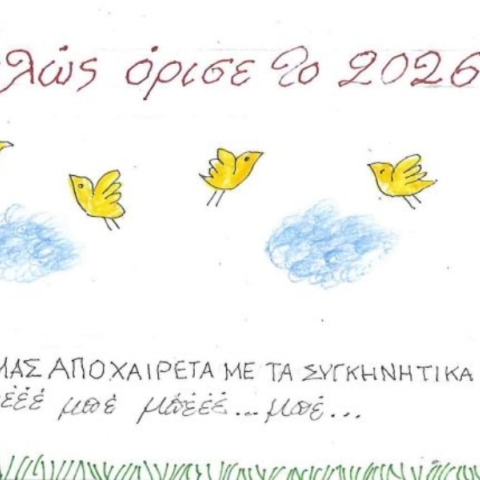 λώς όρισε το 2026
ΜΑΣ ΑΠΟΧΑΙΡΕΤΑ ΜΕ ΤΑ ΣΥΓΚΗΝΗΤΙΚΑ
έέέ μπέ μπέέέ...μπέ...